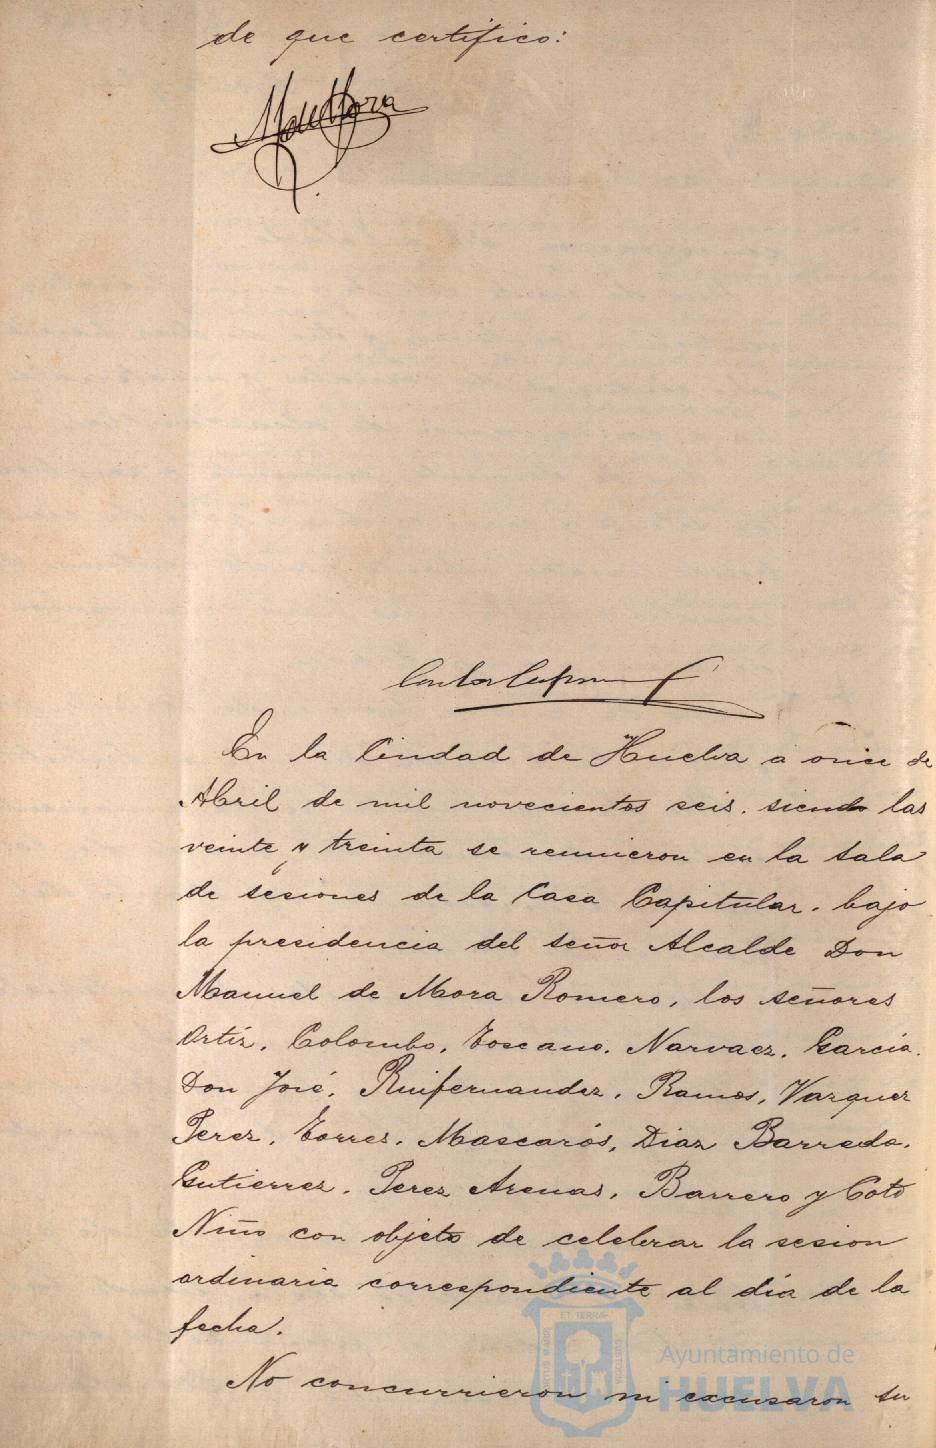 de que certifico:
En la Ciudad de Huelva a once de
Abril de mil novecientos seis. siendo las
veinte y treinta se reunieron en la sala
de sesiones de la Casa Capitular. bajo
la presidencia del señor Alcalde Don
Manuel de Mora Romero, los señores
Ortiz. Colombo. Toscano. Narvaez. Garcia.
Don José. Ruifernandez. Ramos, Vazquez
Perez. Torres. Mascarós, Diaz Barreda.
Gutierrez. Perez Arenas, Barrero y Coto
Niño con objeto de celebrar la sesion
ordinaria correspondiente al día de la
fecha.
No concurrieron ni excusaron su
Ayuntamiento de
HUELVA